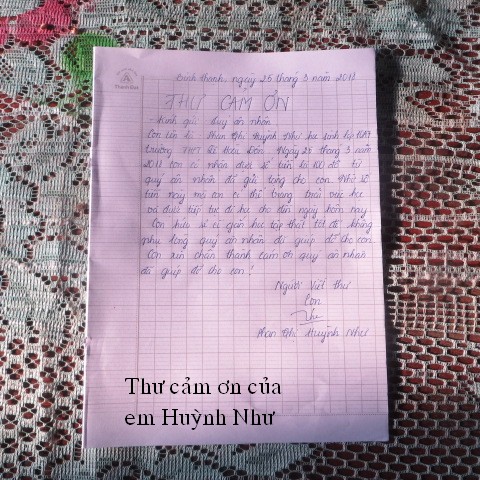 Bình Thạnh, ngày 26 tháng 3 năm 2017
THƯ CẢM ƠN
Kính gửi quý ân nhân
Con tên là Phan Thị Huỳnh Như học sinh lớp 10A9
trường THPT Ngày 26 tháng 3 năm
2017 con có nhận được số tiền là 100 đô từ
quý ân nhân đã gửi tặng cho con. Nhờ số
tiền này mà con có thể trang trải việc học
và được tiếp tục đi học cho đến ngày hôm nay
Con hứa sẽ cố gắn học tập thật tốt để không
phụ lòng quý ân nhân đã giúp đỡ cho con.
Con xin chân thành cảm ơn quý ân nhân
đã giúp đỡ cho con!
Người viết thư
Con
Như
Phan Thị Huỳnh Như
Thư cảm ơn của
em Huỳnh Như